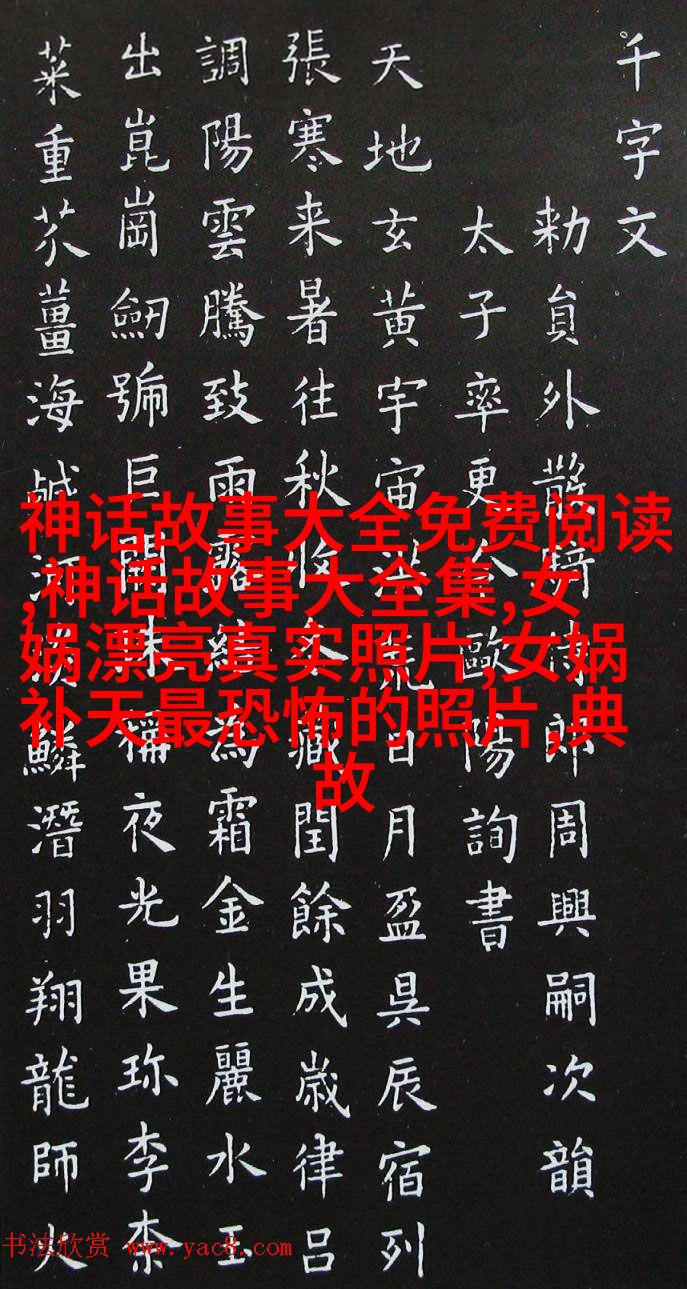 千字文
勑員外散騎侍郎周興嗣次韻
太子率更令歐陽詢書
天地玄黃宇宙洪荒日月盈昃辰宿列
張寒来暑往秋收冬藏閏餘成歲律呂
調陽雲騰致雨露結為霜金生麗水玉
出崑崗劒號巨闕珠稱夜光果珎李柰
菜重芥薑海鹹河淡鱗潛羽翔龍師火
神话故事大全免费阅读
,神话故事大全集,女
娲漂亮真实照片,女娲
补天最恐怖的照片,典
故
书法欣赏 www.yac8.com